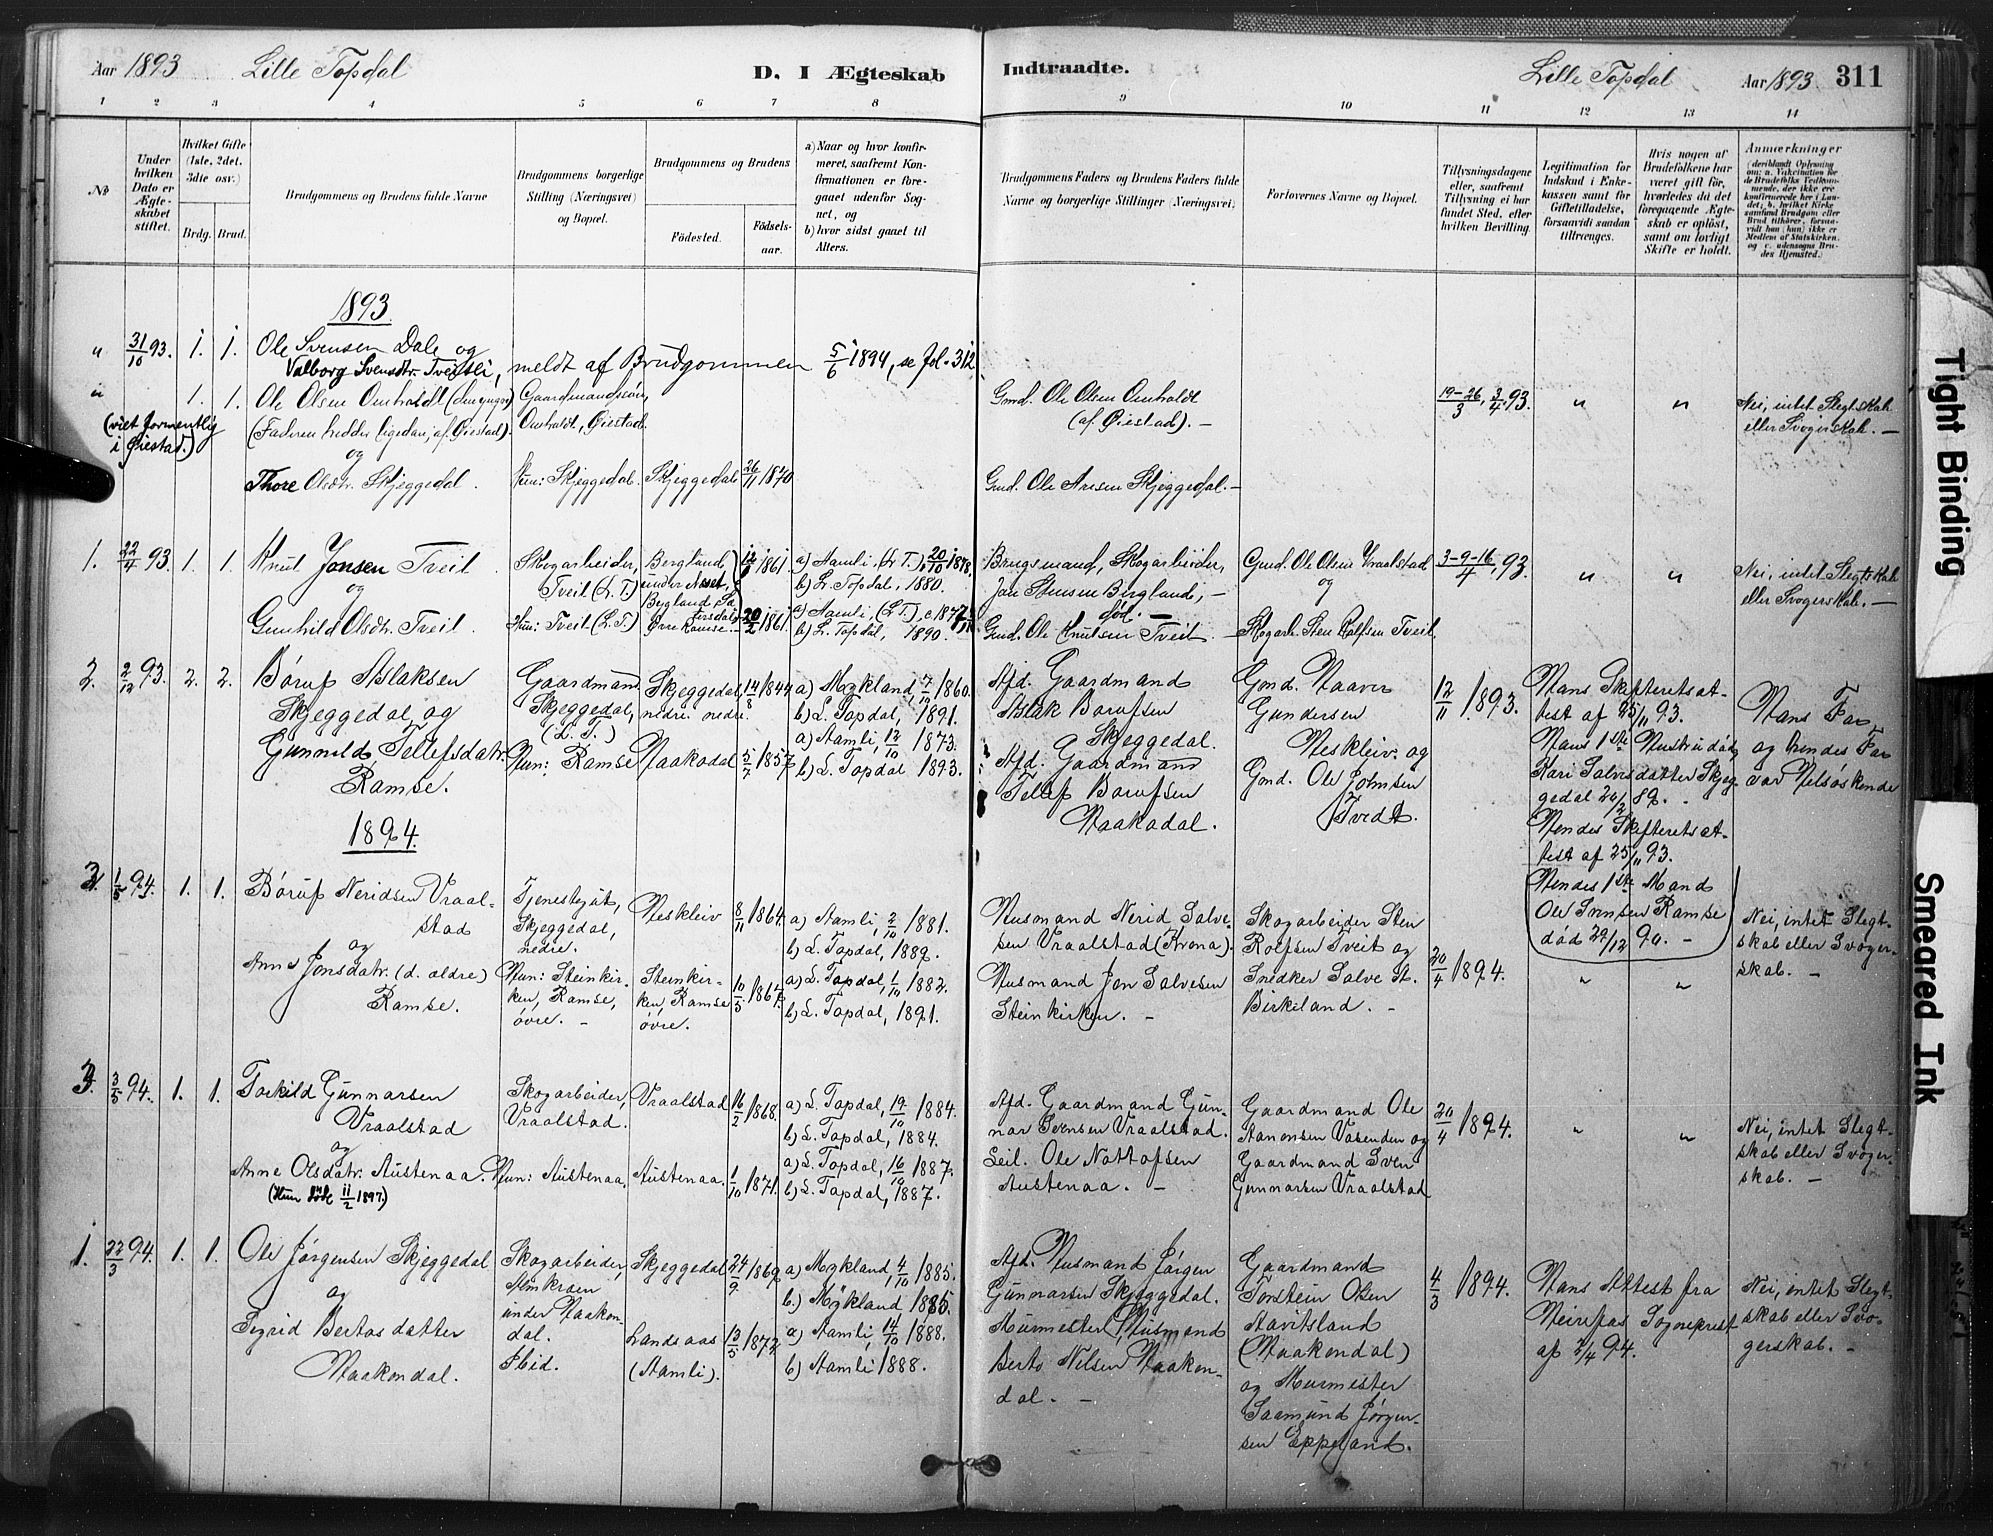 Aar 1893 Lille Topdal D. I Ægteskab Indtraadte. Lille Topdal Aar 1893 311
1 2 3 4 5 6 7 8 9 10 11 12 13 14
No
Under hvilken Dato er Ægteskabet stiftet.
Hvilket Gifte (1ste, 2det, 3die osv.)
Brdg. Brud.
Brudgommens og Brudens fulde Navne
Brudgommens borgerlige Stilling (Næringsvei) og Bopæl.
Brudgommens og Brudens
Fødested.
Fødselsaar.
a) Naar og hvor konfirmeret, saafremt Konfirmationen er foregaaet udenfor Sognet, og
b) hvor sidst gaaet til Alters.
Brudgommens Faders og Brudens Faders fulde Navne og borgerlige Stillinger (Næringsvei)
Forlovernes Navne og Bopæl.
Tillysningsdagene eller, saafremt Tillysning ei har fundet Sted, efter hvilken Bevilling.
Legitimation for Indskud i Enkekassen samt for Giftetilladelse, forsaavidt saadan tiltrænges.
Hvis nogen af Brudefolkene har været gift før, hvorledes da det foregaaende Ægteskab er opløst, samt om lovligt Skifte er holdt.
Anmærkninger
(deriblandt Oplysning om: a. Vaccination for de Brudefolks Vedkommende, der ikke ere konfirmerede her i Landet; b. hvilket Kirkesamfund Brudgom eller Brud tilhører, forsaavidt han (hun) ikke er Medlem af Statskirken, og c. udensogns Brudes Hjemsted.)
1893
" 31/10 93. 1. 1. Ole Svensen Dale og
Valborg Svensdtr. Tveitli, meldt af Brudgommen 5/6 1894, se fol. 312
" 1. 1. Ole Olsen Omholdt (den yngre)
(viet formentlig i Øiestad.)
(Faderen hedder ligedan, af Øiestad).
og
Thore Olsdtr. Skjeggedal.
Gaardmandssøn, Omholdt, Øiestad.
Hun: Skjeggedal. Skjeggedal 26/11 1870
Gmd. Ole Olsen Omholdt
(af Øiestad). —
Gmd. Ole Aresen Skjeggedal. —
19-26/3, 3/4 93. " "
Nei, intet Slegtskab
eller Svogerskab. —
1. 22/4 93. 1. 1. Knut Jonsen Tveit
og
Gunhild Olsdtr. Tveit.
Skogarbeider,
Tveit (L. T.)
Hun: Tveit (L. T.)
Bergland,
1861.
20/2 1861.
a) Aamli, (L. T.), 20/10 1878,
b) L. Topdal, 1880.
b) L. Topdal, 1890.
Brugsmand, Skogarbeider,
Jon Stensen Bergland, —
død. —
Gmd. Ole Knutsen Tveit —
Gmd. Ole Olsen Vraalstad
og
Skogarb. Sten Rolfsen Tveit
3-9-16/4 93. " "
Nei, intet Slegtskab
eller Svogerskab. —
2. 2/12 93. 2. 2. Børuf Aslaksen
Skjeggedal og
Gunnild Tellefsdatr.
Ramse.
Gaardmand
Skjeggedal,
(L. T.)
Hun: Ramse
Skjeggedal
nedre
14/8 1844
Haakadal 5/7 1857
a) Mykland, 7/10 1860.
b) L. Topdal, 1891.
a) Aamli, 12/10 1873.
b) L. Topdal, 1893.
Afd. Gaardmand
Aslak Borufsen
Skjeggedal.
Afd. Gaardmand
Tellef Borufsen
Haakadal.
Gmd. Haaver
Gundersen
Heskleiv. og
Gmd. Ole Johnsen
Tvedt.
12/11 1893.
Hans Skifteretsat-
test af 25/11 93.
Hans 1ste Hustru død,
Kari Salvesdatter Skjeg-
gedal 20/2 89.
Hendes Skifteretsat-
test af 25/11 93.
Hendes 1ste Mand
Ole Svensen Ramse
død 29/12 90. —
Hans Far
og hendes Far
var Helsøskende
1894.
3. 1/5 94. 1. 1. Børuf Neridsen Vraal-
stad
og
Anne Jonsdatr. (d. ældre)
Ramse.
Tjenestegut,
Skjeggedal,
nedre.
Hun: Steinkir-
ken, Ramse,
øvre. —
Heskleiv 8/11 1864.
Steinkir-
ken, Ramse
øvre.
10/5 1867.
a) Aamli, 2/10 1881.
b) L. Topdal, 1889.
a) L. Topdal, 1/10 1882.
b) L. Topdal, 1891.
Husmand Nerid Salve-
sen Vraalstad (Krona).
Husmand Jon Salvesen
Steinkirken. —
Skogarbeider Sten
Rolfsen Tveit og
Snedker Salve St.
Birkeland. —
20/4 1894. " "
Nei, intet Slegt-
skab eller Svoger-
skab. —
4. 3/5 94. 1. 1. Torkild Gunnarsen
Vraalstad
og
Anne Olsdatr. Austenaa.
(Hun døde 11/2 1897)
Skogarbeider,
Vraalstad.
Hun: Austenaa.
Vraalstad 16/2 1868.
Austenaa. 1/10 1871.
a) L. Topdal, 19/10 1884.
b) L. Topdal, 1884.
a) L. Topdal, 16/10 1887.
b) L. Topdal, 1887.
Afd. Gaardmand Gun-
nar Svensen Vraalstad.
Ole Nottofsen
Austenaa. —
Gaardmand Ole
Aanonsen Vasenden og
Gaardmand Sven
Gunnarsen Vraalstad
20/4 1894. " "
Nei, intet Slegt-
skab eller Svoger-
skab. —
1. 22/3 94. 1. 1. Ole Jørgensen Skjeggedal
og
Sigrid Bertosdatter
Haakondal.
Skogarbeider,
under Haakon-
dal.
Ibid.
Skjeggedal 24/9 1869
Landsaas
(Aamli).
13/5 1872
a) Mykland, 4/10 1885.
b) Mykland 1885.
a) Aamli, 14/10 1888.
b) Aamli 1888.
Afd. Husmand Jørgen
Gunnarsen Skjeggedal.
Murmester, Husmand
Berto Nilsen Haakon-
dal. —
Gaardmand
Torstein Olsen
Stavitsland
(Haakondal)
og Murmester
Saamund Jørgen-
sen Eppeland.
4/3 1894.
Hans Attest fra
Sogneprest
af 2/4 94.
Nei, intet Slegt-
skab eller Svo-
gerskab. —
Tight Binding
Smeared Ink